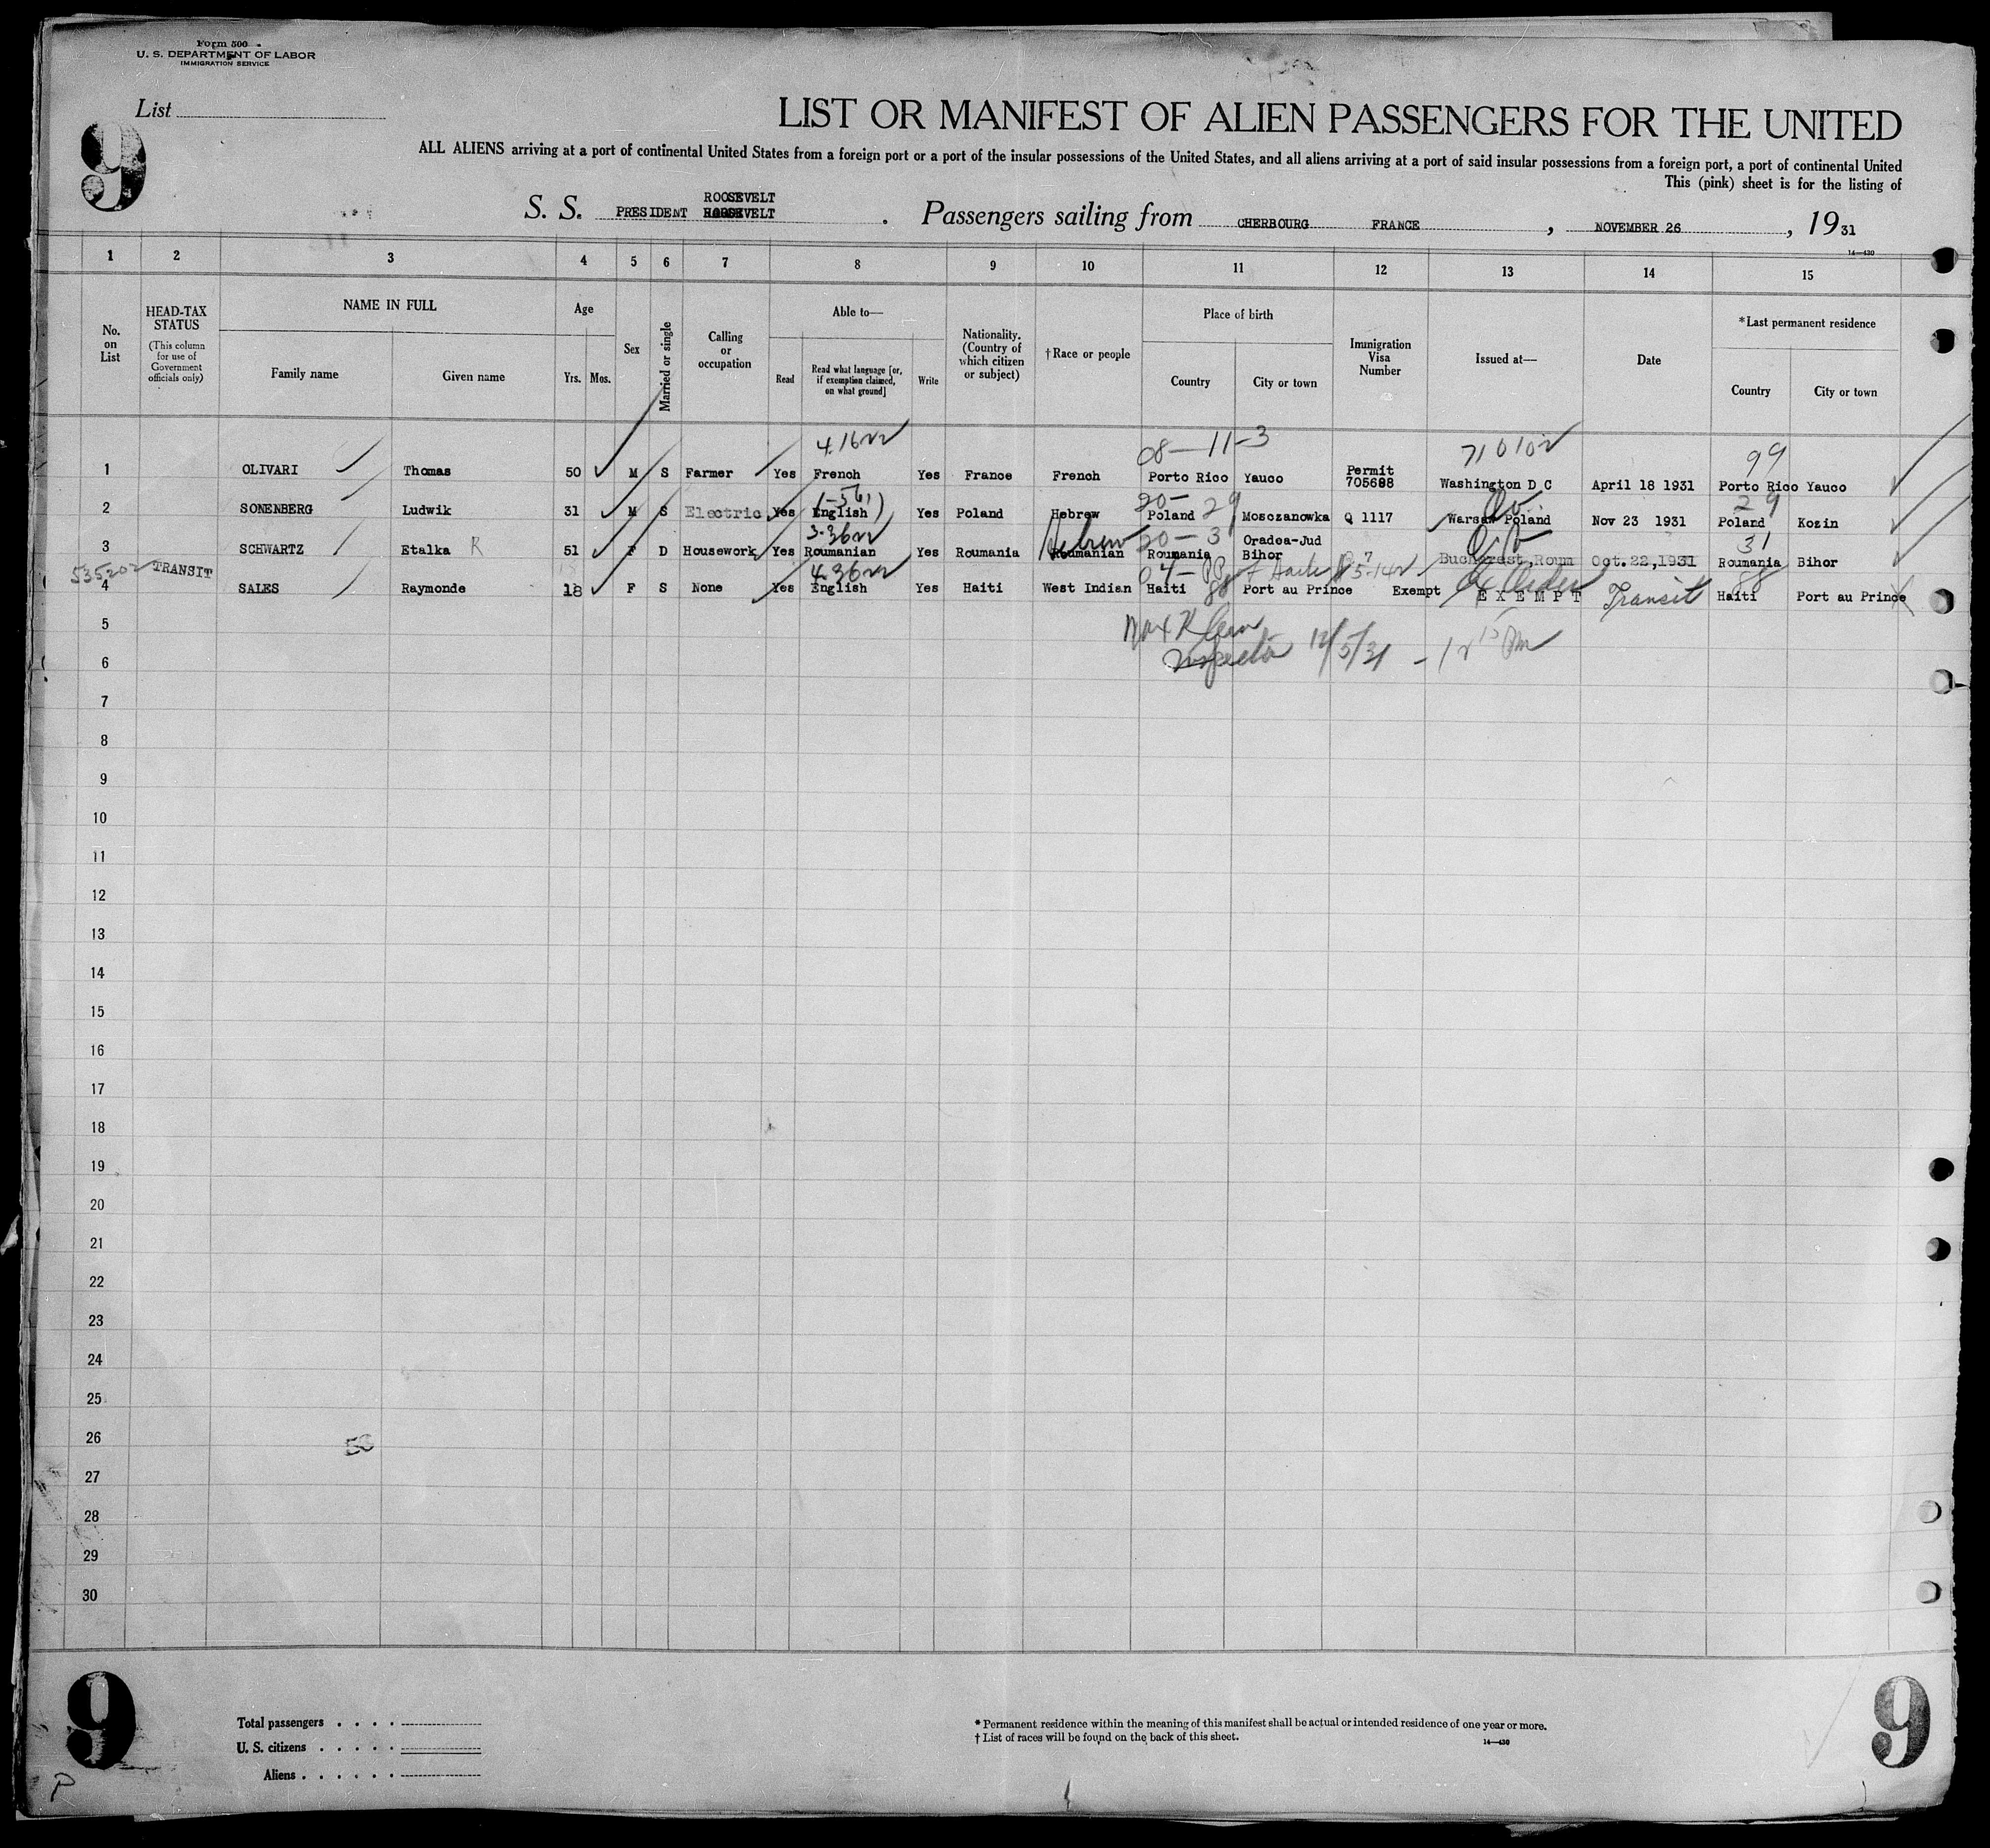 Form 500
U. S. DEPARTMENT OF LABOR
IMMIGRATION SERVICE
List
9
LIST OR MANIFEST OF ALIEN PASSENGERS FOR THE UNITED
ALL ALIENS arriving at a port of continental United States from a foreign port or a port of the insular possessions of the United States, and all aliens arriving at a port of said insular possessions from a foreign port, a port of continental United
This (pink) sheet is for the listing of
ROOSEVELT
S. S. PRESIDENT . Passengers sailing from CHERBOURG FRANCE , NOVEMBER 26 , 1931
14—430
1 2 3 4 5 6 7 8 9 10 11 12 13 14 15
No. on List
HEAD-TAX STATUS
(This column for use of Government officials only)
NAME IN FULL
Family name Given name
Age
Yrs. Mos.
Sex
Married or single
Calling or occupation
Able to—
Read
Read what language [or, if exemption claimed, on what ground]
Write
Nationality. (Country of which citizen or subject)
†Race or people
Place of birth
Country City or town
Immigration Visa Number
Issued at—
Date
*Last permanent residence
Country City or town
08—11-3 99
1 OLIVARI Thomas 50 M S Farmer Yes French Yes France French Porto Rico Yauco Permit 705688 Washington D C April 18 1931 Porto Rico Yauco
20— 29 29
2 SONENBERG Ludwik 31 M S Electric Yes English Yes Poland Hebrew Poland Mosczanowka Q 1117 Warsaw Poland Nov 23 1931 Poland Kozin
Hebrew 20— 31 31
3 SCHWARTZ Etalka R 51 F D Housework Yes Roumanian Yes Roumania Roumanian Roumania Oradea-Jud Bihor 7 Bucharest,Roum Oct.22,1931 Roumania Bihor
535202 TRANSIT 88
4 SALES Raymonde 18 F S None Yes English Yes Haiti West Indian Haiti Port au Prince Exempt EXEMPT Transit Haiti Port au Prince
5
Max Klein
Inspector 12/5/31
6
7
8
9
10
11
12
13
14
15
16
17
18
19
20
21
22
23
24
25
26
27
28
29
30
9
9
Total passengers
U. S. citizens
Aliens
* Permanent residence within the meaning of this manifest shall be actual or intended residence of one year or more.
† List of races will be found on the back of this sheet.
14—430
P